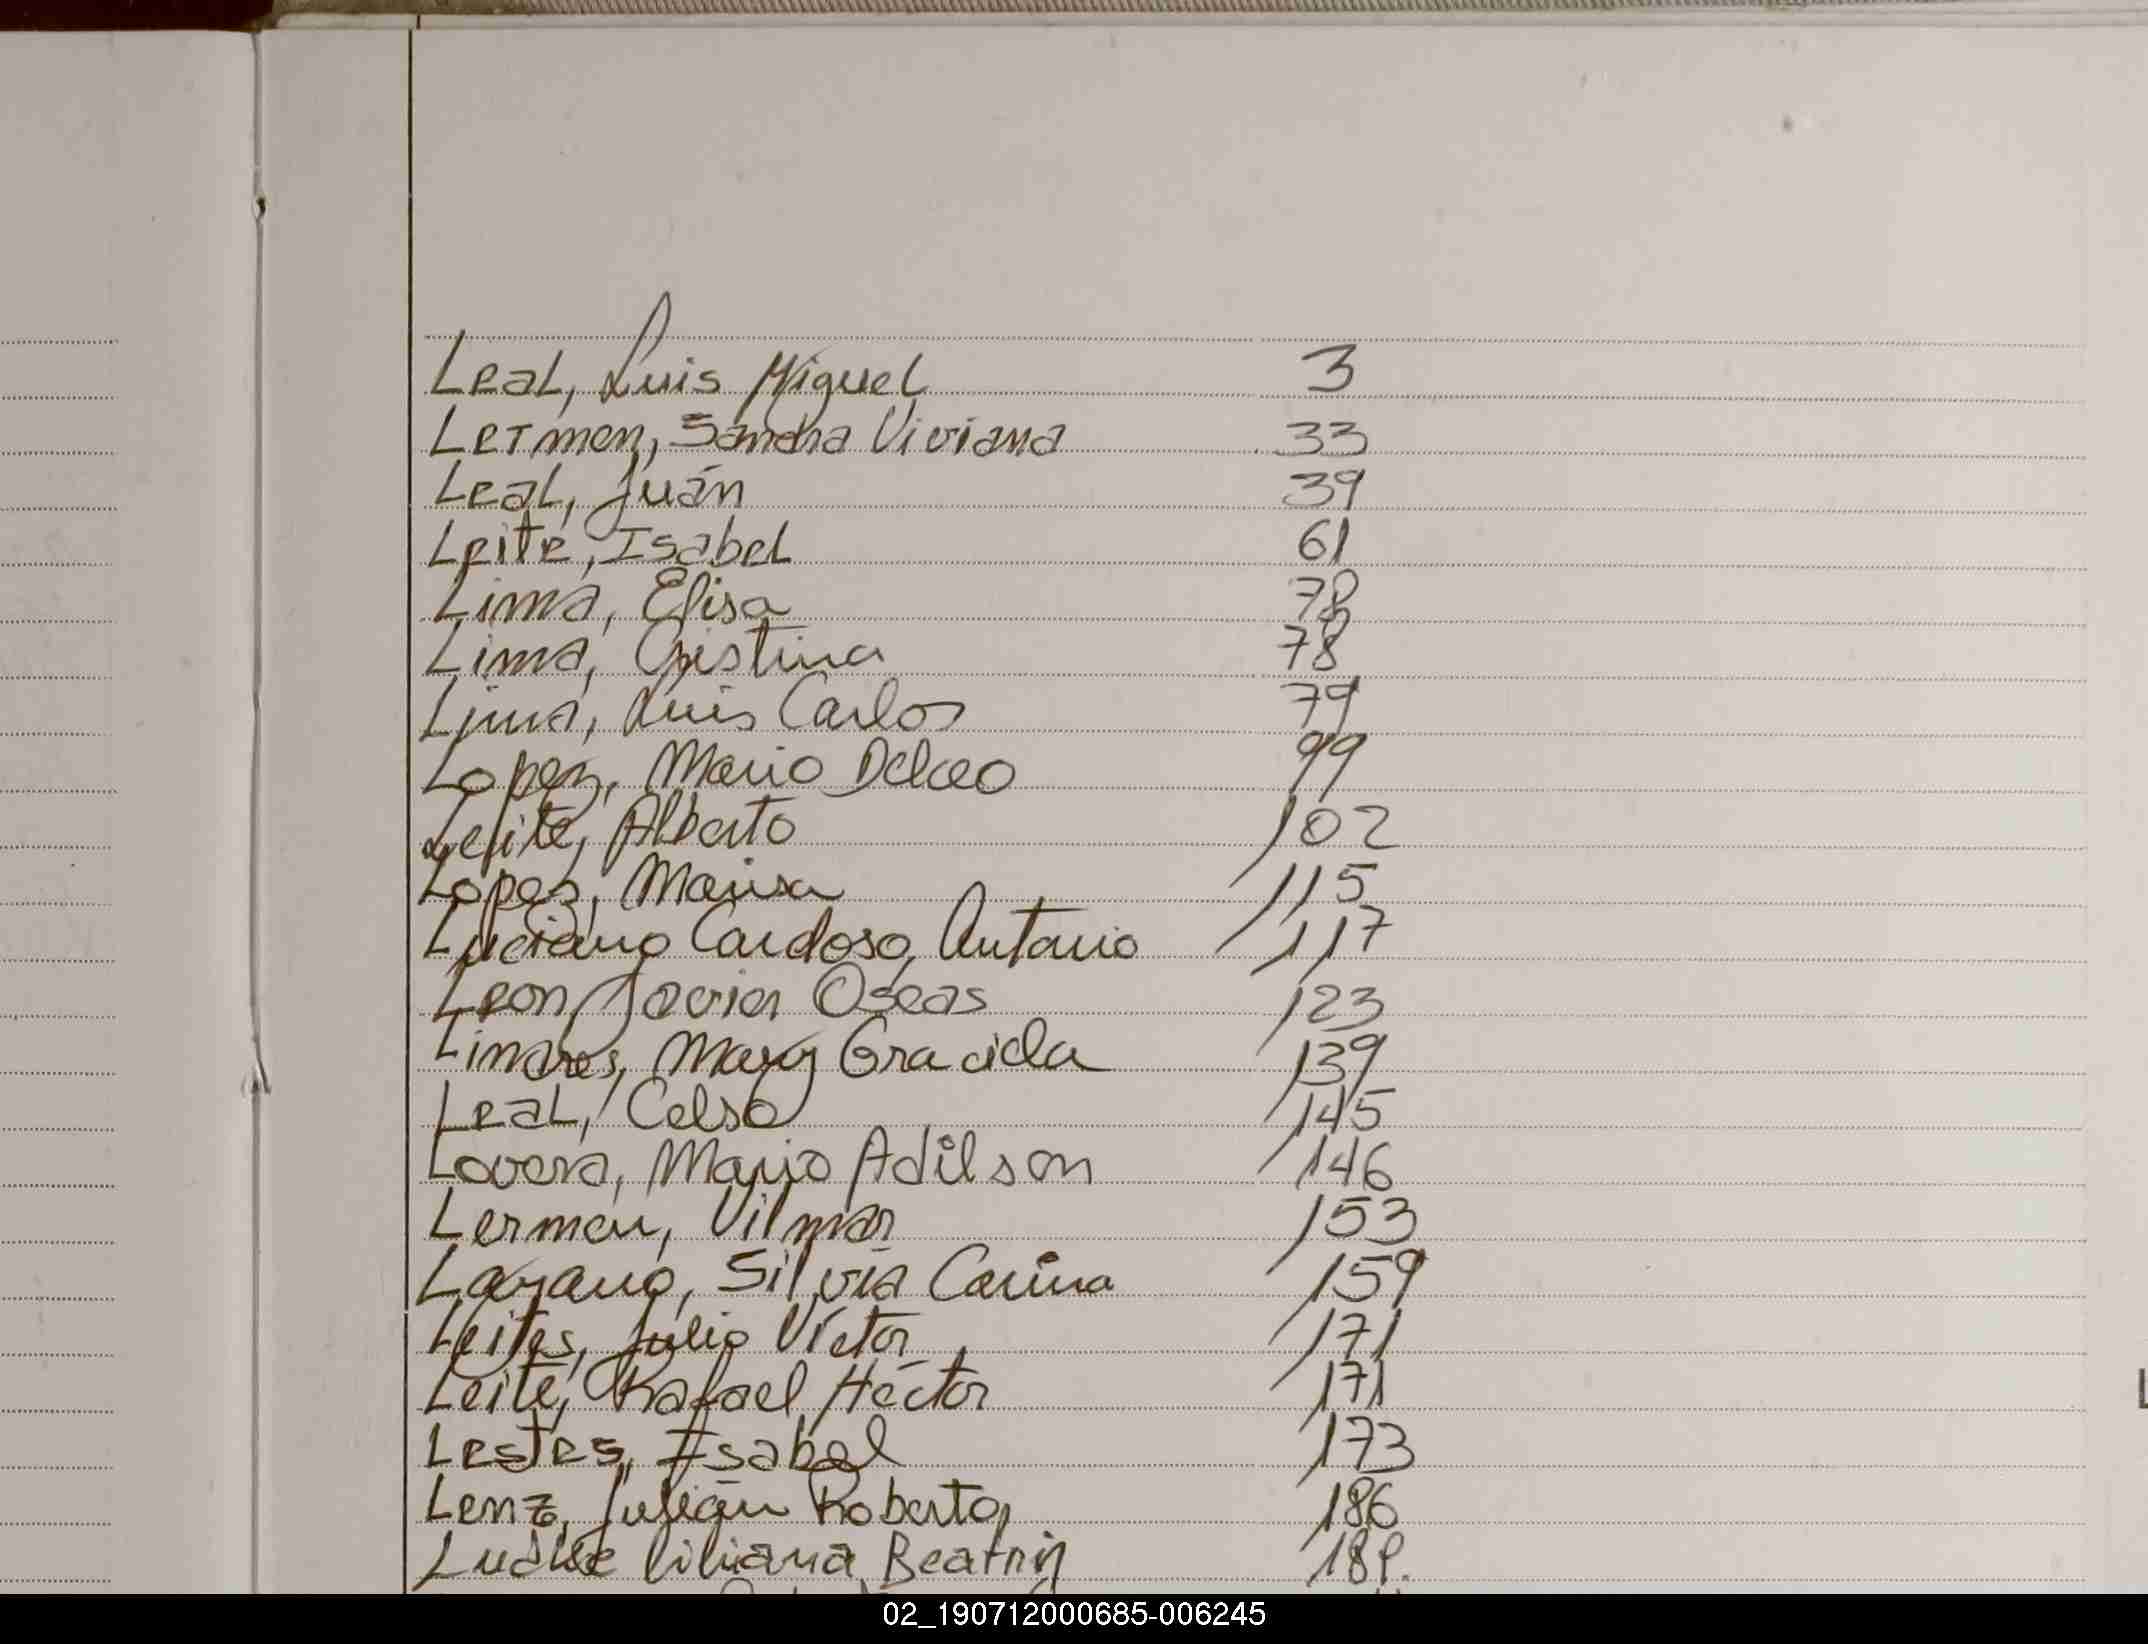 Leal, Luis Miguel 3
Lermen, Sandra Viviana 33
Leal, Juán 39
Leite, Isabel 61
Lima, Elisa 78
Lima, Cristina 78
Lima, Luis Carlos 79
Lopez, Mario 99
Leite, Alberto 102
Lopez, Marisa 115
Luciano Cardoso, Antonio 117
Leon, Javier Oseas 123
Linares, Mary Graciela 139
Leal, Celso 145
Lovera, Mario Adilson 146
Lermen, Vilmar 153
Silvia Carina 159
Leites, Julio Víctor 171
Leite, Rafael Héctor 171
Lestes, Isabel 173
Lenz, Julián Roberto 186
Liliana Beatriz
L
02_190712000685-006245